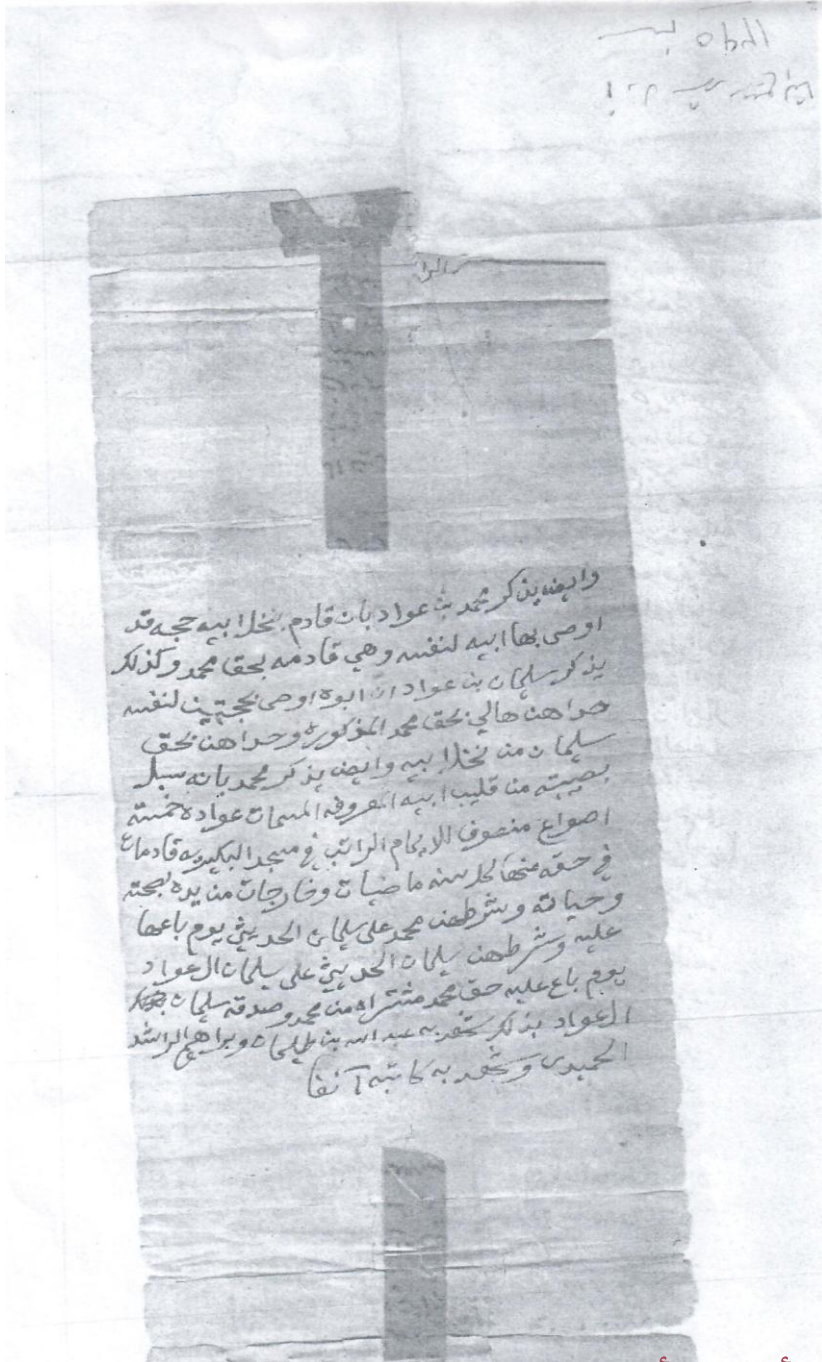 وايضا يذكر محمد بن عواد بان قادم بنخل ابيه حجه قد
اوصى بها ابيه لنفسه وهي قادمه بحق محمد وكذلك
يذكر سليمان بن عواد ان ابوه اوصى بحجتين لنفسه
حداهن هالي بحق محمد المذكوره وحداهن بحق
سليمان من نخل ابيه وايضا يذكر محمد بانه سبل
نصيبته من قليب ابيه المعروفه المسمات عواده خمسة
اصواع منصوف للامام الراتب في مسجد البكيريه قادمات
في حقه منها كل سنه ماضيات وخارجات من يده بصحته
وحياته وشرطهن محمد على سليمان الحديثي يوم باعها
عليه وشرطهن سليمان الحديثي على سليمان ال عواد
يوم باع عليه حق محمد مشتراه من محمد وصدقه سليمان
العواد بذلك شهد به عبد الله بن سليمان وبراهيم الراشد
الحميدي وشهد به كاتبه آنفا